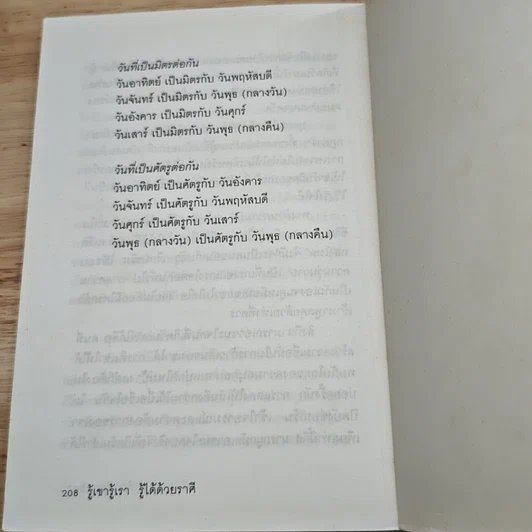 วันที่เป็นมิตรต่อกัน
วันอาทิตย์ เป็นมิตรกับ วันพฤหัสบดี
วันจันทร์ เป็นมิตรกับ วันพุธ (กลางวัน)
วันอังคาร เป็นมิตรกับ วันศุกร์
วันเสาร์ เป็นมิตรกับ วันพุธ (กลางคืน)
วันที่เป็นศัตรูต่อกัน
วันอาทิตย์ เป็นศัตรูกับ วันอังคาร
วันจันทร์ เป็นศัตรูกับ วันพฤหัสบดี
วันศุกร์ เป็นศัตรูกับ วันเสาร์
วันพุธ (กลางวัน) เป็นศัตรูกับ วันพุธ (กลางคืน)
208 รู้เขารู้เรา รู้ได้ด้วยราศี